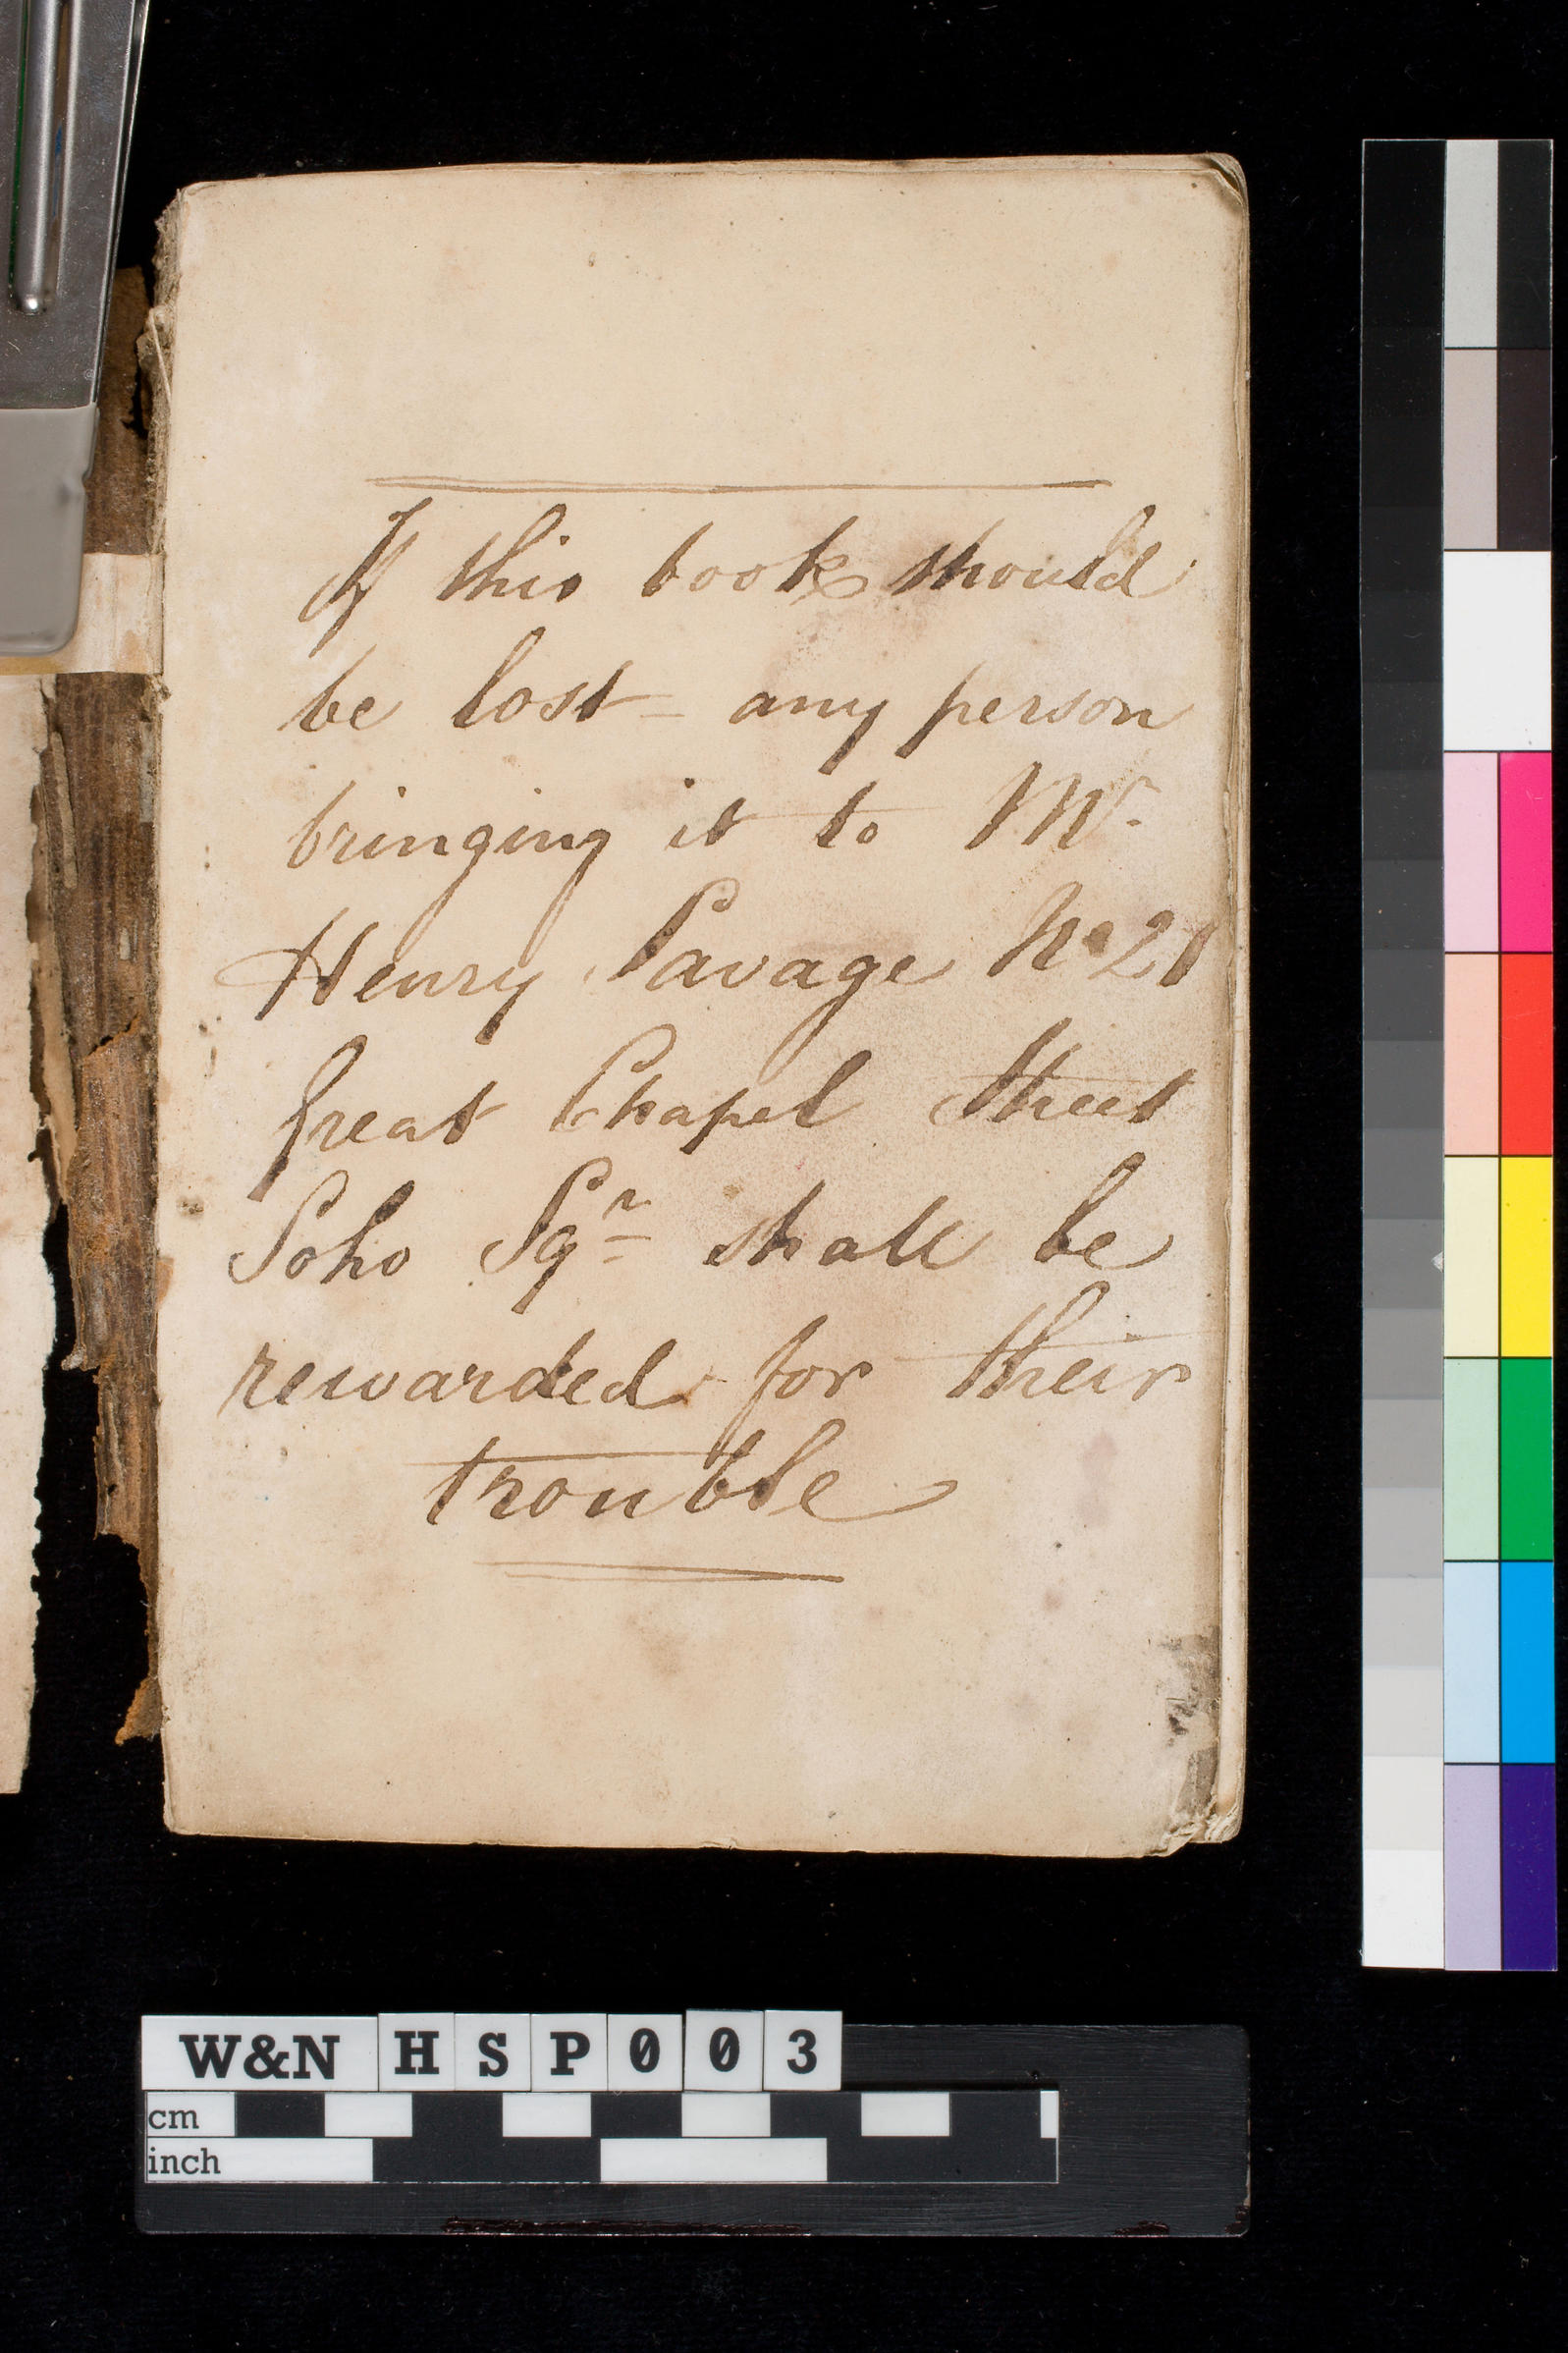 If this book should
be lost - any person
bringing it to Mr.
Henry Savage No 21
Great Chapel Street
Soho Sqr shall be
rewarded for their
trouble
W&N HSP003
cm
inch